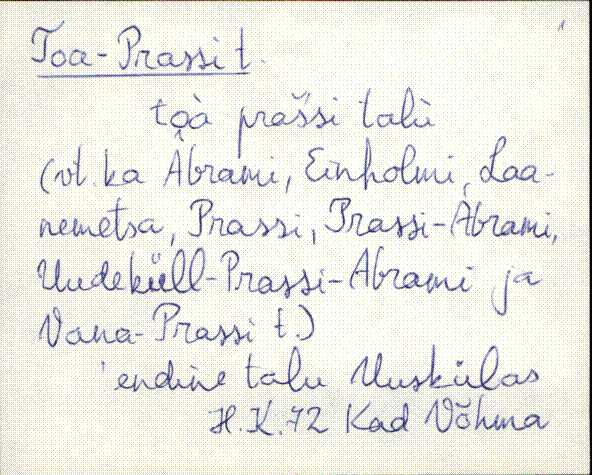 Toa-Prassi t.
toà prašsi talù
(vt. ka Àbrami, Einholmi, Laa-
nemetsa, Prassi, Prassi-Àbrami,
Uudeküll-Prassi-Abrami ja
Vana-Prassi t.)
endine talu Uuskülas
H.K.72 Kad Võhma